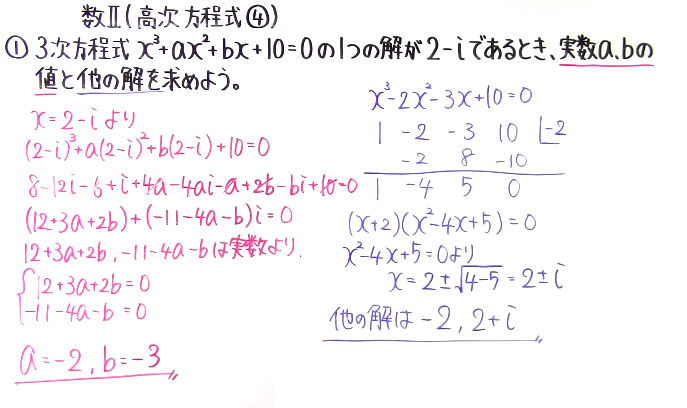 数Ⅱ(高次方程式④)
① 3次方程式 x³+ax²+bx+10=0の1つの解が2-iであるとき、実数a、bの
値と他の解を求めよう。
x=2-iより
(2-i)³+a(2-i)²+b(2-i)+10=0
8-12i-6+i+4a-4ai-a+2b-bi+10=0
(12+3a+2b)+(-11-4a-b)i=0
12+3a+2b, -11-4a-bは実数より.
12+3a+2b=0
-11-4a-b=0
a=-2, b=-3
x³-2x²-3x+10=0
1 -2 -3 10 |-2
-2 8 -10
1 -4 5 0
(x+2)(x²-4x+5)=0
x²-4x+5=0より
x=2±√4-5=2±i
他の解は -2, 2+i